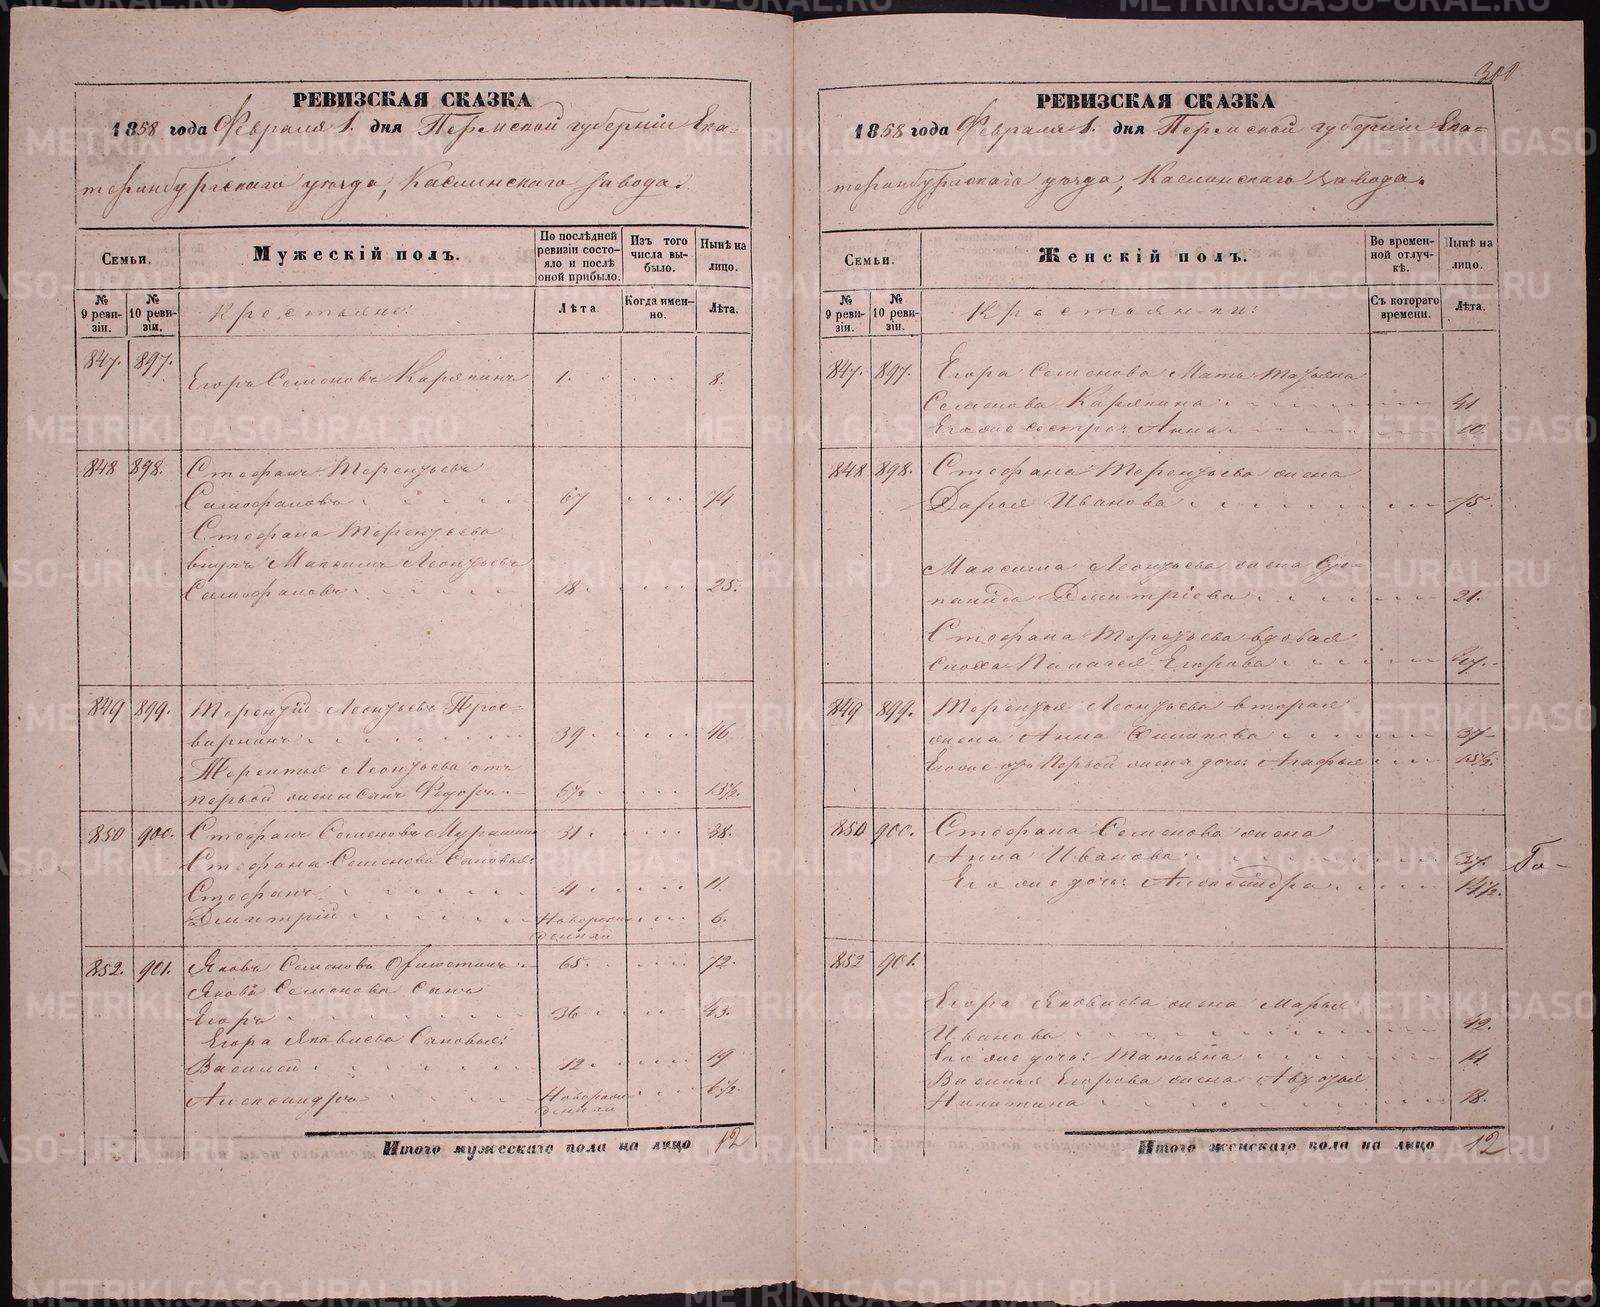 РЕВИЗСКАЯ СКАЗКА
1858 года Февраля 1. дня Пермской губерніи Ека-
теринбургскаго уѣзда, Каслинскаго завода.
Семьи.
Мужескій полъ.
По послѣдней ревизіи состояло и послѣ оной прибыло.
Изъ того числа выбыло.
Нынѣ на лицо.
№ 9 ревизіи.
№ 10 ревизіи.
Крестьяне:
Лѣта.
Когда именно.
Лѣта.
847. 897.
Егоръ Семеновъ Карякинъ 1. 8.
848 898. Стефанъ Терентьевъ
67 74
Стефана Терентьева
внукъ Максимъ Леонтьевъ
18 25.
849 899. Терентій Леонтьевъ Прос-
вирнинъ 39 46
Терентья Леонтьева отъ
первой жены сынъ Федоръ 6½ 13½.
850 900. Стефанъ Семеновъ 31 38.
Стефана Семенова сыновья:
Стефанъ 4 11.
Дмитрій Новорожденный 6.
852. 901. Яковъ Семеновъ 65. 72.
Якова Семенова сынъ
Егоръ 36 43.
Егора Яковлева сыновья:
Василей 12. 19
Александръ Новорожденный 6½.
Итого мужескаго пола на лицо 12
РЕВИЗСКАЯ СКАЗКА
1858 года Февраля 1. дня Пермской губерніи Ека-
теринбургскаго уѣзда, Каслинскаго завода.
Семьи.
Женскій полъ.
Во временной отлучкѣ.
Нынѣ на лицо.
№ 9 ревизіи.
№ 10 ревизіи.
Крестьянки:
Съ котораго времени.
Лѣта.
847. 897. Егора Семенова мать Татьяна
Семенова Карякина 41
Его же сестра: Анна 10.
848 898. Стефана Терентьева жена
Дарья Иванова 75.
Максима Леонтьева жена Сте-
панида Дмитріева 21.
Стефана Терентьева вдовая
сноха Егорова
849 899. Терентья Леонтьева вторая
жена Анна 37
Его же отъ первой жены дочь: Агафья 15½.
850 900. Стефана Семенова жена
Анна Иванова 37.
Его же дочь: Александра
852 901.
Егора Яковлева жена Марья
Иванова 42.
Его же дочь: Татьяна 14.
Василья Егорова жена Авдотья
Никитина 18.
Итого женскаго пола на лицо 12
METRIKI.GASO-URAL.RU